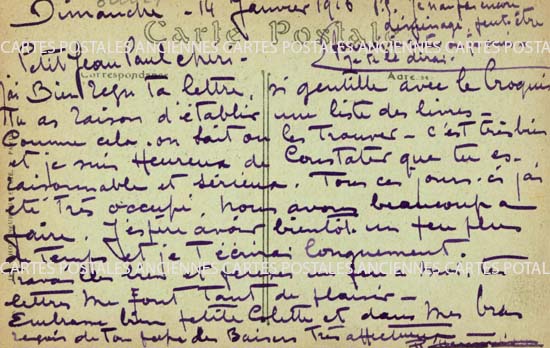 Dimanche - 14 Janvier 1916
P.S. Je n'ai pas encore
déménagé, peut être
Carte Postale
Je te le dirai.
Petit Jean Paul chéri -
Correspondance
Adresse
CARTES POSTALES ANCIENNES CARTES POSTALES ANCIENNES CARTES POSTALES
j'ai Bien reçu ta lettre, si gentille avec le Croquis
Tu as raison d'établir une liste des livres -
Comme cela, on sait où les trouver - c'est très bien
et je suis Heureux de Constater que tu es
raisonnable et sérieux. Tous ces jours-ci j'ai
été très occupé, nous avons beaucoup à
faire. J'espère avoir bientôt un peu plus
de temps et je t'écrirai longuement.
CARTES POSTALES ANCIENNES CARTES POSTALES ANCIENNES CARTES POSTALES
Travaille bien et
lettres me font tant de plaisir -
Embrasse bien petite Colette et dans mes bras
reçois de ton papa des Baisers très affectueux